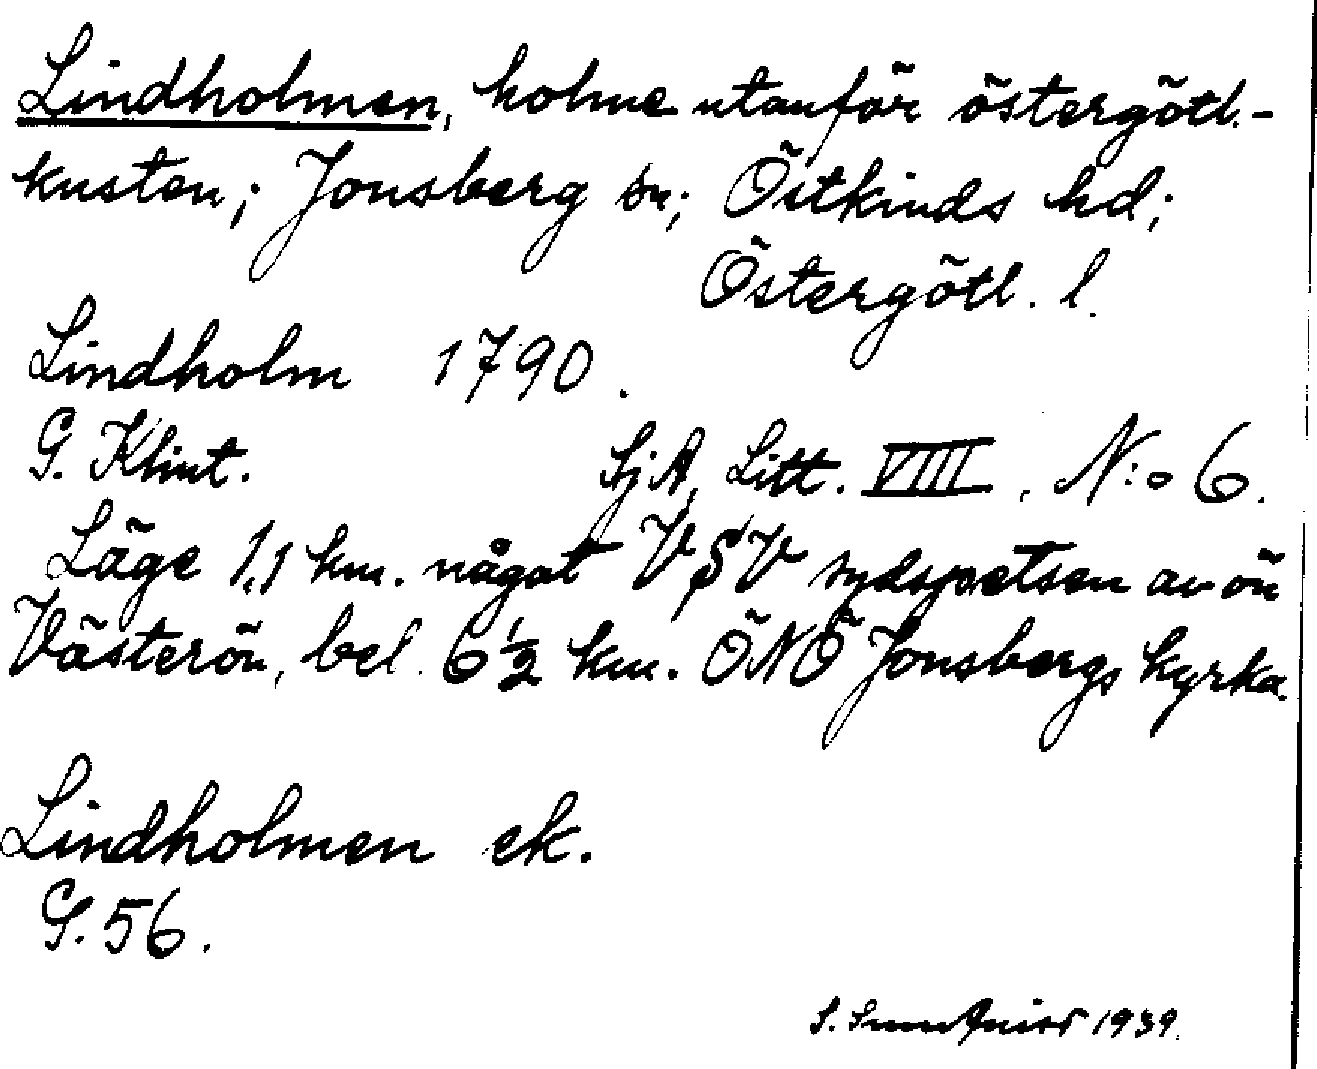 Lindholmen, holme utanför östergötl.-
kusten; Jonsberg sn; Östkinds hd;
Östergötl. l.
Lindholm 1790.
G. Klint. SjA, Litt. VIIII, N:o 6.
Läge 1,1 km. något VSV sydspetsen av ön
Västerön, bel. 6 1/2 km. ÖNÖ Jonsbergs kyrka.
Lindholmen ek.
G. 56.
S. 1939.